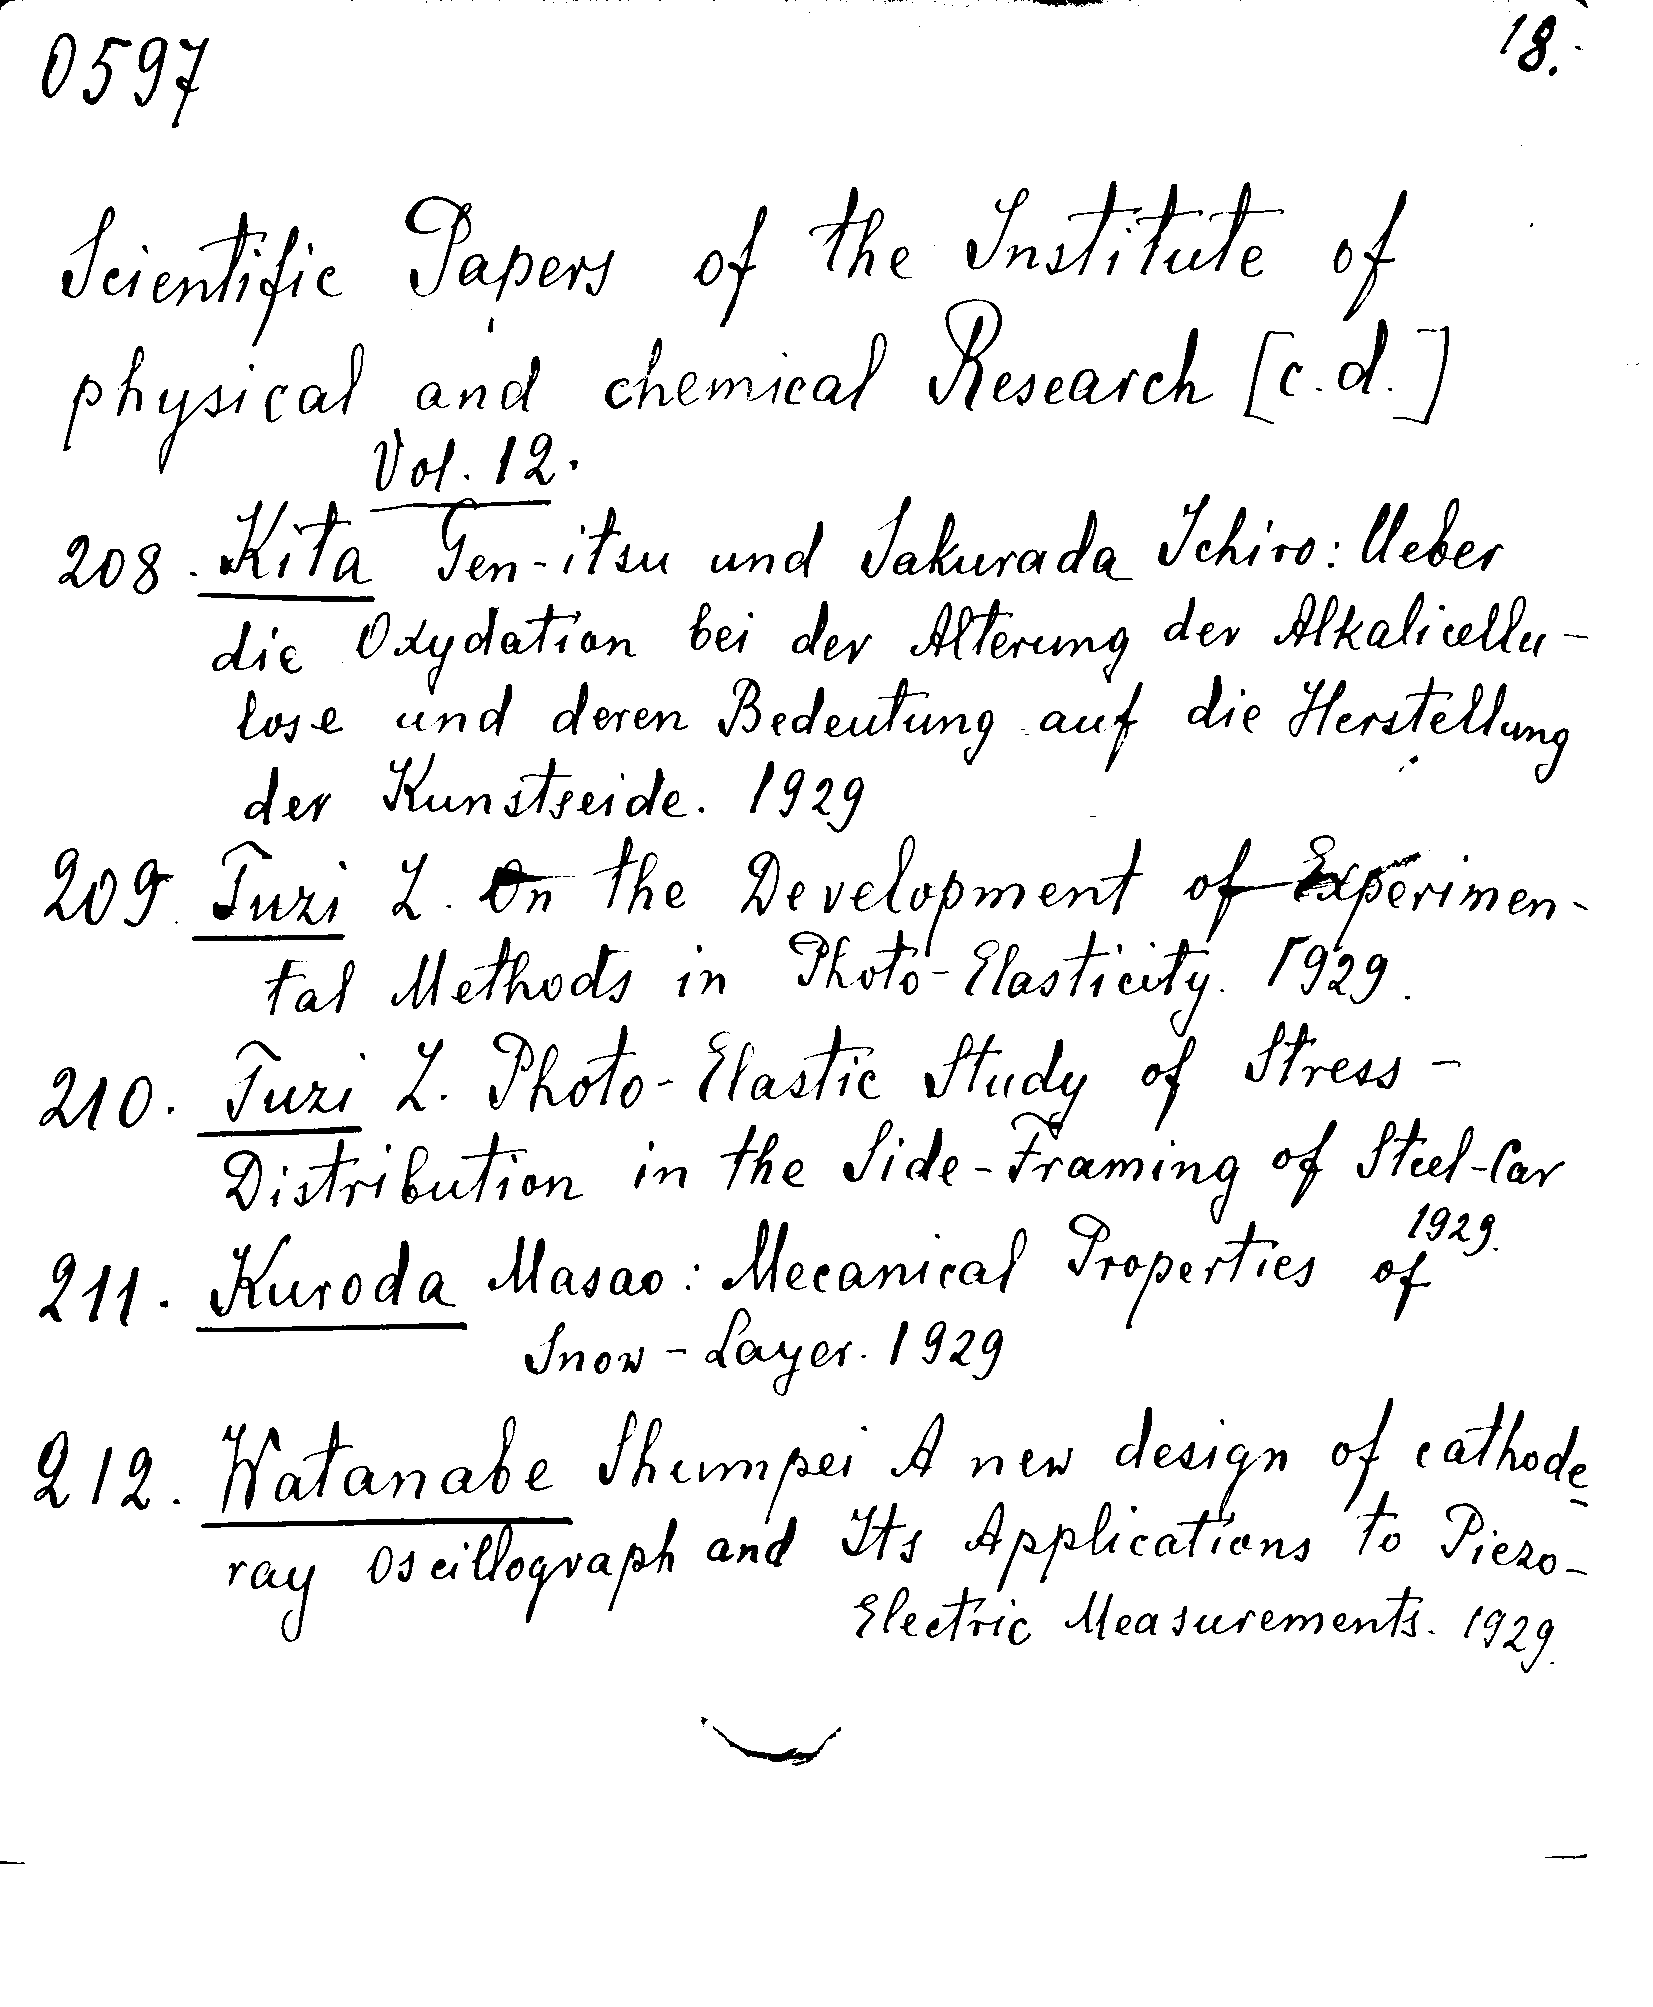 0597
18.
Scientific Papers of the Institute of
physical and chemical Research [c.d.]
Vol. 12.
208. Kita Gen-itsu und Sakurada Ichiro: Ueber
die Oxydation bei der Alterung der Alkalicellu-
lose und deren Bedeutung auf die Herstellung
der Kunstseide. 1929
209. Tuzi Z. On the Development of Experimen-
tal Methods in Photo-Elasticity. 1929.
210. Tuzi Z. Photo-Elastic Study of Stress-
Distribution in the Side-Framing of Steel-Car
1929.
211. Kuroda Masao: Mecanical Properties of
Snow-Layer. 1929
212. Watanabe Shumpei A new design of cathode-
ray Oscillograph and Its Applications to Piezo-
Electric Measurements. 1929.